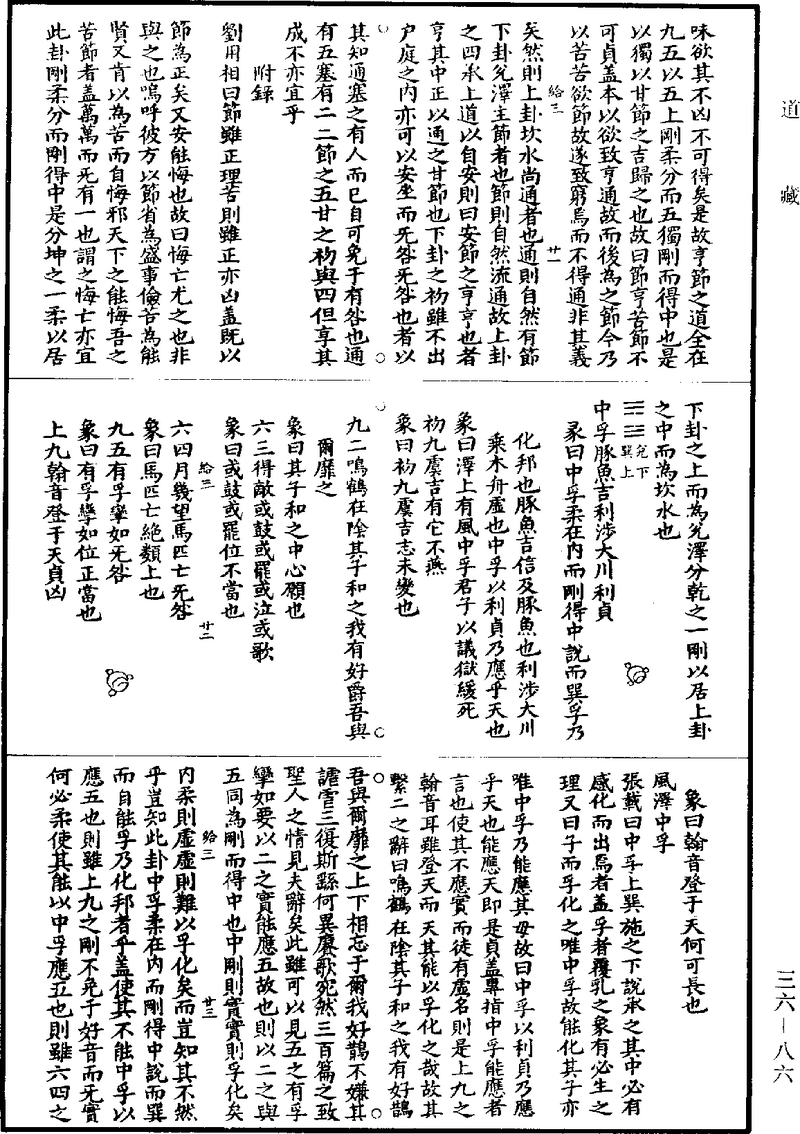 道藏
味欲其不凶不可得矣是故亨節之道全在
九五以五上剛柔分而五獨剛而得中也是
以獨以甘節之吉歸之也故曰節亨苦節不
可貞蓋本以欲致亨通故而後為之節今乃
以苦苦欲節故遂致窮焉而不得通非其義
給三 廿一
矣然則上卦坎水尚通者也通則自然有節
下卦兊澤主節者也節則自然流通故上卦
之四承上道以自安則曰安節之亨亨也者
亨其中正以通之甘節也下卦之初雖不出
户庭之内亦可以安坐而旡咎旡咎也者以
其知通塞之有人而已自可免于有咎也通
有五塞有二二節之五甘之初與四但享其
成不亦宜乎
附錄
劉用相曰節雖正理苦則雖正亦凶蓋既以
節為正矣又安能悔也故曰悔亡尤之也非
與之也嗚呼彼方以節省為盛事儉苦為能
賢又肯以為苦而自悔邪天下之能悔吾之
苦節者蓋萬萬而旡有一也謂之悔亡亦宜
此卦剛柔分而剛得中是分坤之一柔以居
下卦之上而為兊澤分乾之一剛以居上卦
之中而為坎水也
兊下
巽上
中孚豚魚吉利涉大川利貞
彖曰中孚柔在内而剛得中說而巽孚乃
化邦也豚魚吉信及豚魚也利涉大川
乘木舟虛也中孚以利貞乃應乎天也
象曰澤上有風中孚君子以議獄緩死
初九虞吉有它不燕
象曰初九虞吉志未變也
九二鳴鶴在陰其子和之我有好爵吾與
爾靡之
象曰其子和之中心願也
六三得敵或鼓或罷或泣或歌
象曰或鼓或罷位不當也
給三 廿二
六四月幾望馬匹亡旡咎
象曰馬匹亡絕類上也
九五有孚攣如旡咎
象曰有孚攣如位正當也
上九翰音登于天貞凶
象曰翰音登于天何可長也
風澤中孚
張載曰中孚上巽施之下說承之其中必有
感化而出焉者蓋孚者覆乳之象有必生之
理又曰子而孚化之唯中孚故能化其子亦
唯中孚乃能應其母故曰中孚以利貞乃應
乎天也能應天即是貞蓋專指中孚能應者
言也使其不應實而徒有虛名則是上九之
翰音耳雖登天而天其能以孚化之哉故其
繫二之辭曰鳴鶴在陰其子和之我有好鵲
吾與爾靡之上下相忘于爾我好鵲不嫌其
譫雪三復斯繇何異賡歌宛然三百篇之致
聖人之情見夫辭矣此雖可以見五之有孚
攣如要以二之實能應五故也則以二之與
五同為剛而得中也中剛則實實則孚化矣
給三 廿三
内柔則虛虛則難以孚化矣而豈知其不然
乎豈知此卦中孚柔在内而剛得中說而巽
而自能孚乃化邦者乎蓋使其不能中孚以
應五也則雖上九之剛不免于好音而旡實
何必柔使其能以中孚應五也則雖六四之
三六—八六